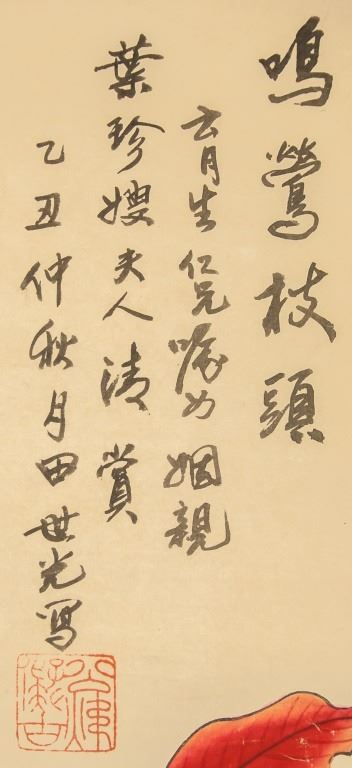 鳴鶯枝頭
育生仁兄囑為姻親
葉珍嫂夫人清賞
乙丑仲秋月田世光寫